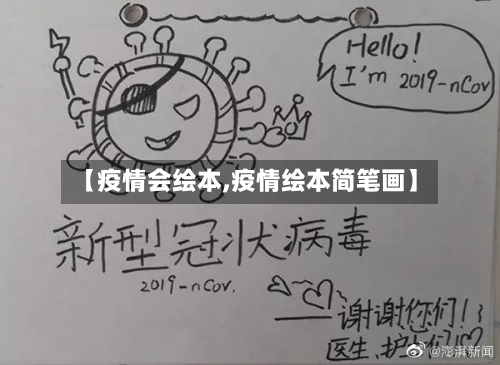 Hello!
I'm 2019-nCov
【疫情会绘本,疫情绘本简笔画】
新型冠状病毒
2019-nCov.
谢谢您们!
医生、护士们
@澎湃新闻